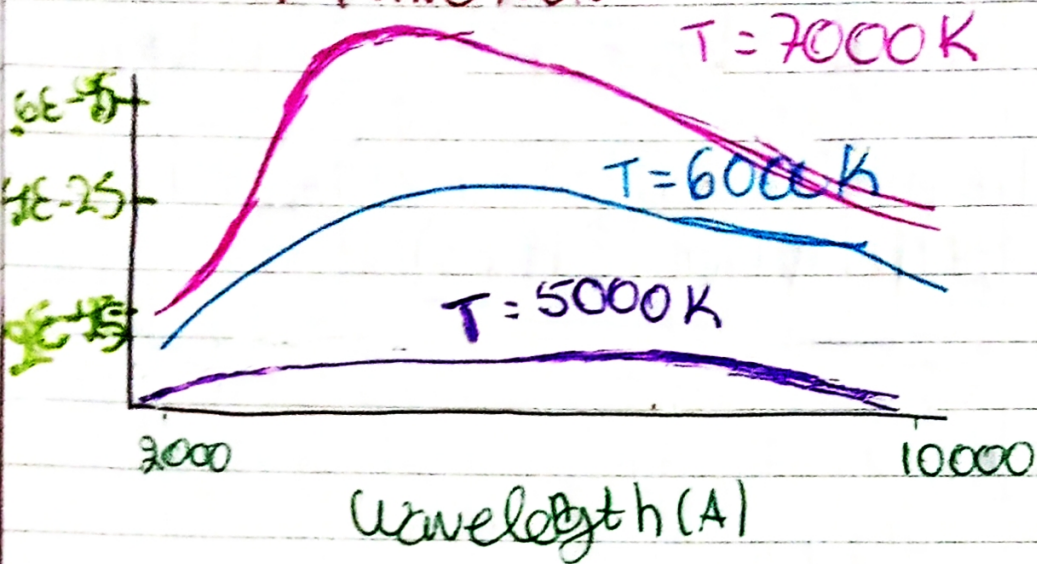 T = 7000K
4E-25
T=6000K
T = 5000K
2000
10000
Wavelength (A)